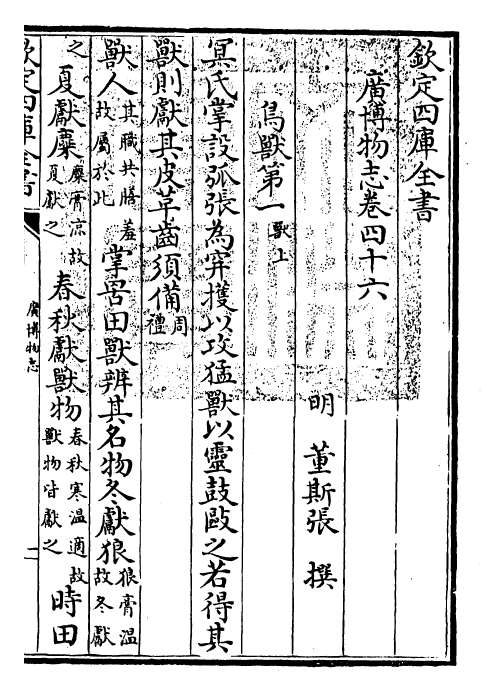 欽定四庫全書
廣博物志卷四十六
明 董斯張 撰
鳥獸第一獸上
冥氏掌設弧張為穽擭以攻猛獸以靈鼓敺之若得其
獸則獻其皮革齒須備周禮
獸人其職共膳羞故屬於此掌罟田獸辨其名物冬獻狼狼膏温故冬獻
之夏獻麋麋膏凉故夏獻之春秋獻獸物春秋寒温適故獸物皆獻之時田
欽定四庫全書
廣博物志